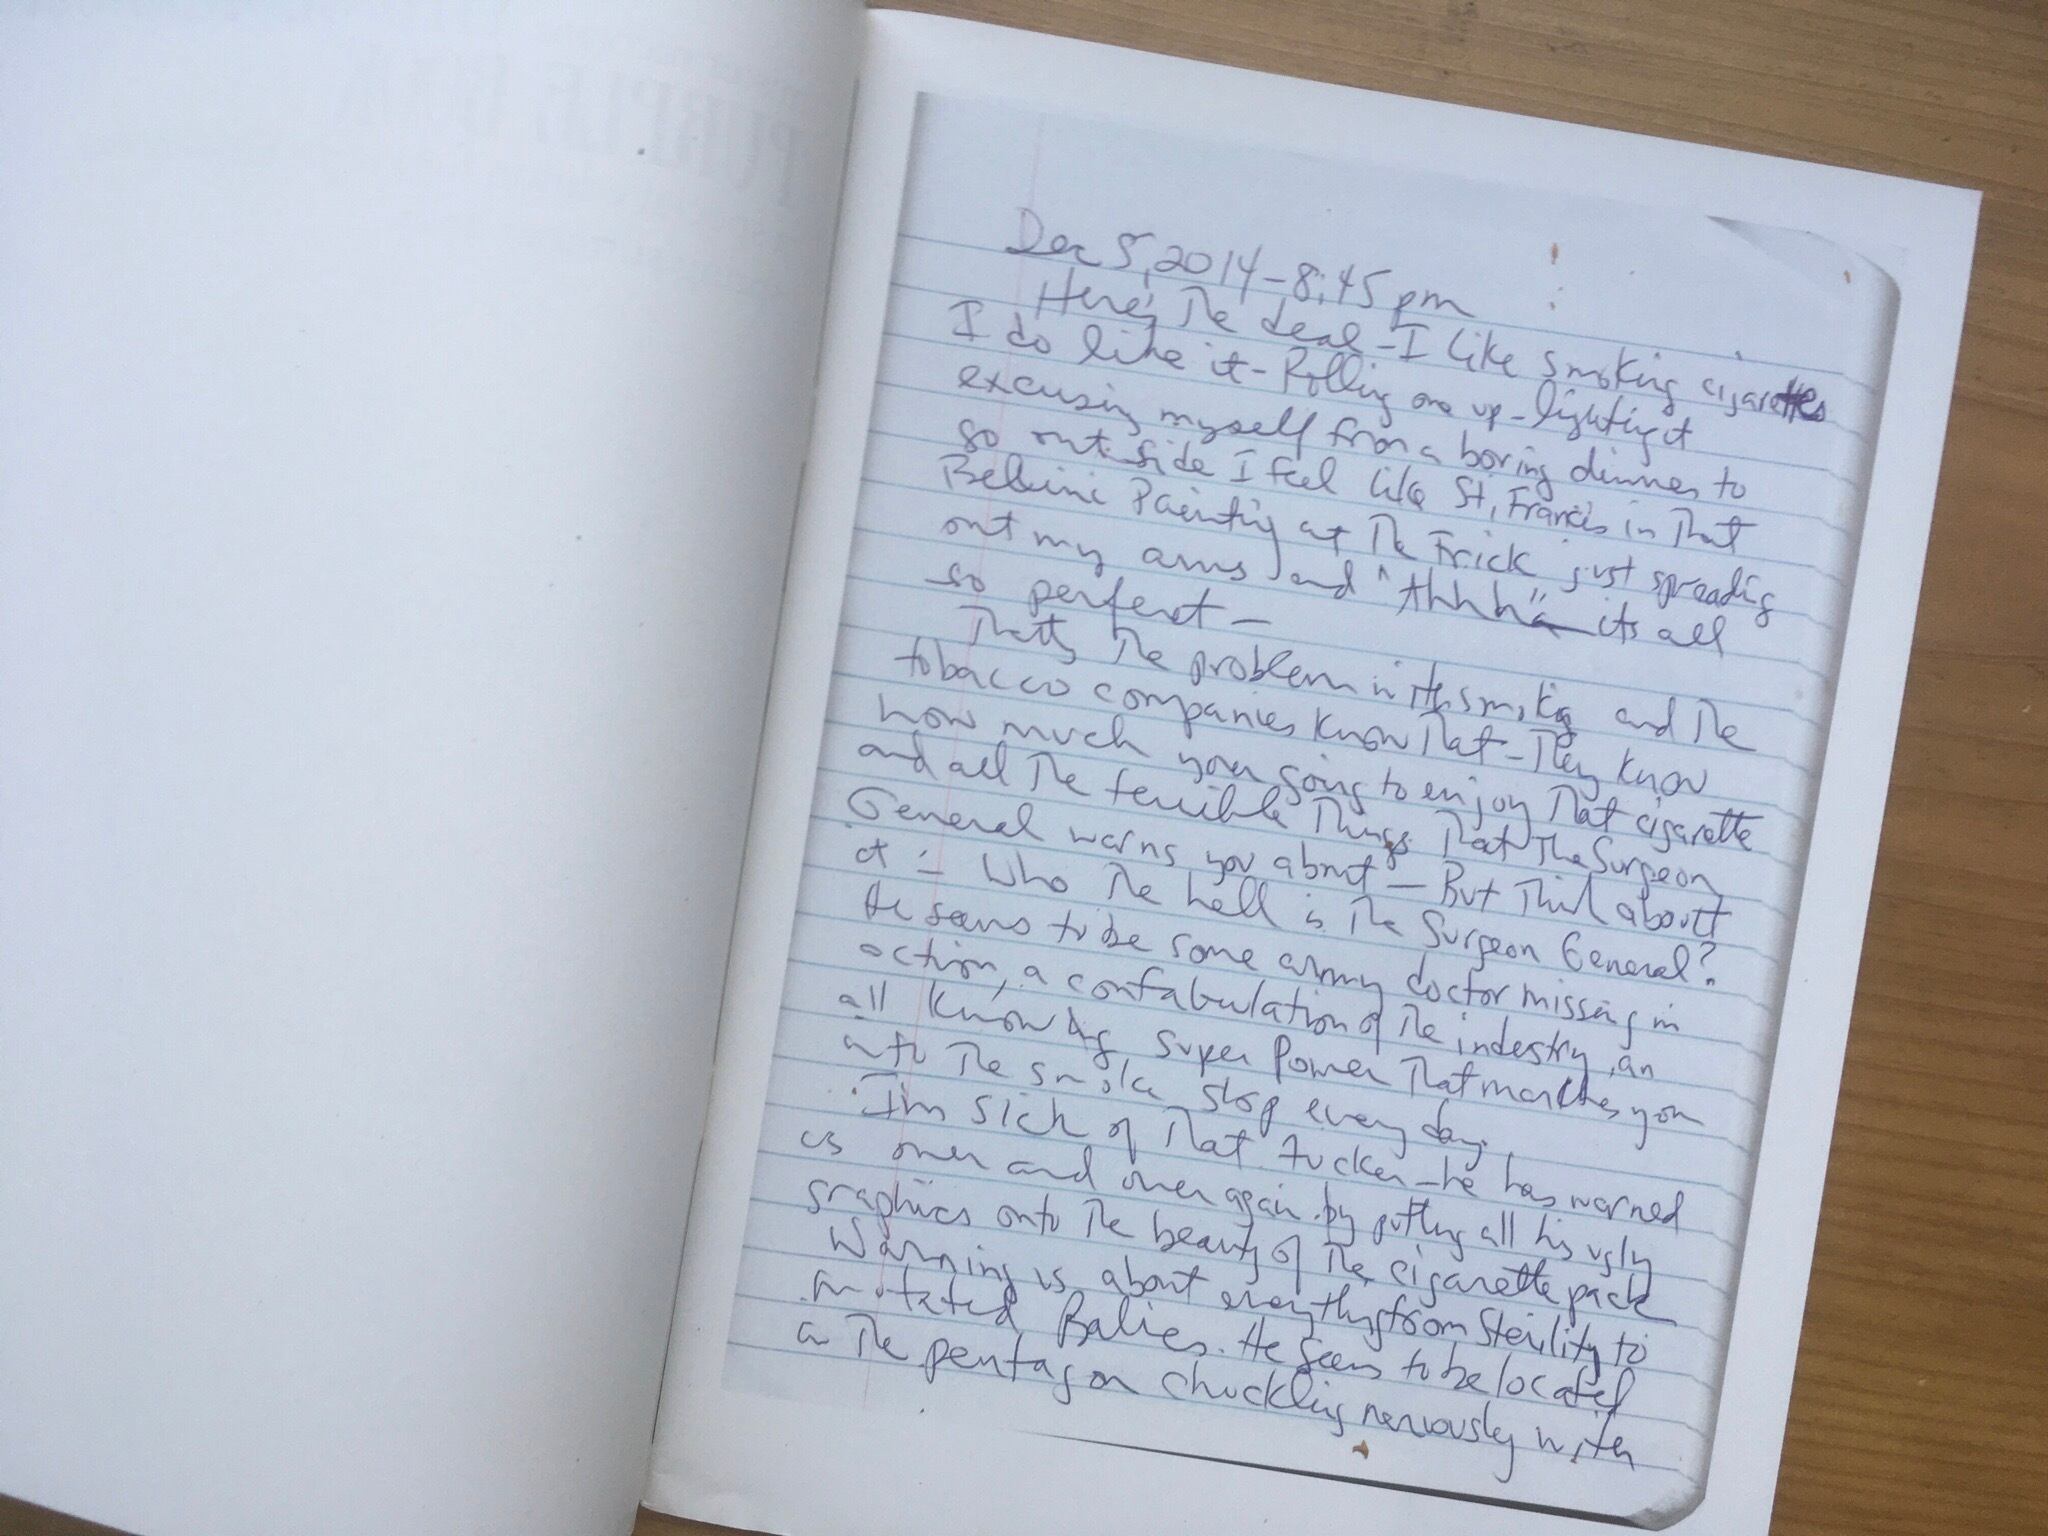 Dec 5, 2014 - 8:45 pm
Here's The deal - I like smoking cigarettes
I do like it - Rolling one up - lighting it
excusing myself from a boring dinner to
go outside I feel like St, Francis in That
Bellini Painting at The Frick just spreading
out my arms and "Ahhh" its all
so perfect —
That's The problem with smoking and The
tobacco companies know That - They know
how much your going to enjoy That cigarette
and all The terrible Things That The Surgeon
General warns you about - But Think about
it - Who The hell is The Surgeon General?
He seems to be some army doctor missing in
action, a confabulation of The indestry, an
all knowing super Power That marches you
into The smoke shop every day.
I'm sick of That fucker - he has warned
us over and over again by putting all his ugly
graphics onto The beauty of The cigarette pack
Warning us about everything from Sterility to
mutated Babies. He seems to be located
in The pentagon chuckling nervously with